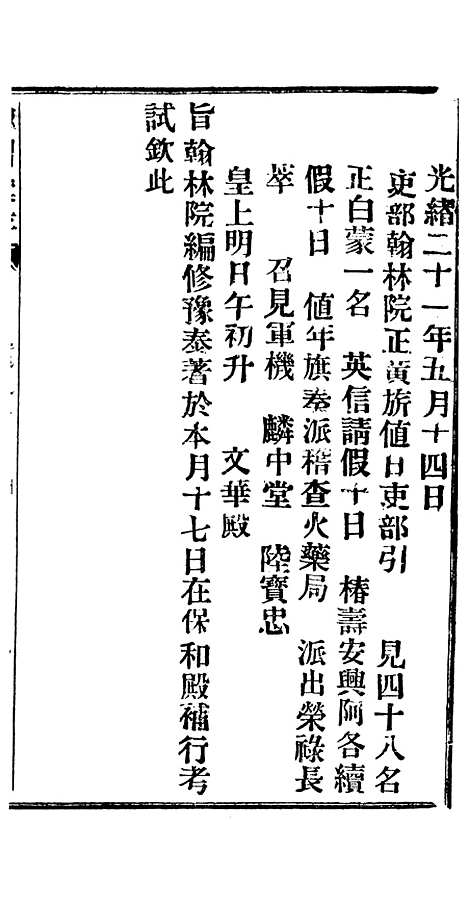 光緒二十一年五月十四日
吏部翰林院正黃旂值日吏部引 見四十八名
正白蒙一名 英信請假十日 椿壽安興阿各續
假十日 值年旗奏派稽查火藥局 派出榮祿長
萃 召見軍機 麟中堂 陸寶忠
皇上明日午初升 文華殿
旨翰林院編修豫泰著於本月十七日在保和殿補行考
試欽此